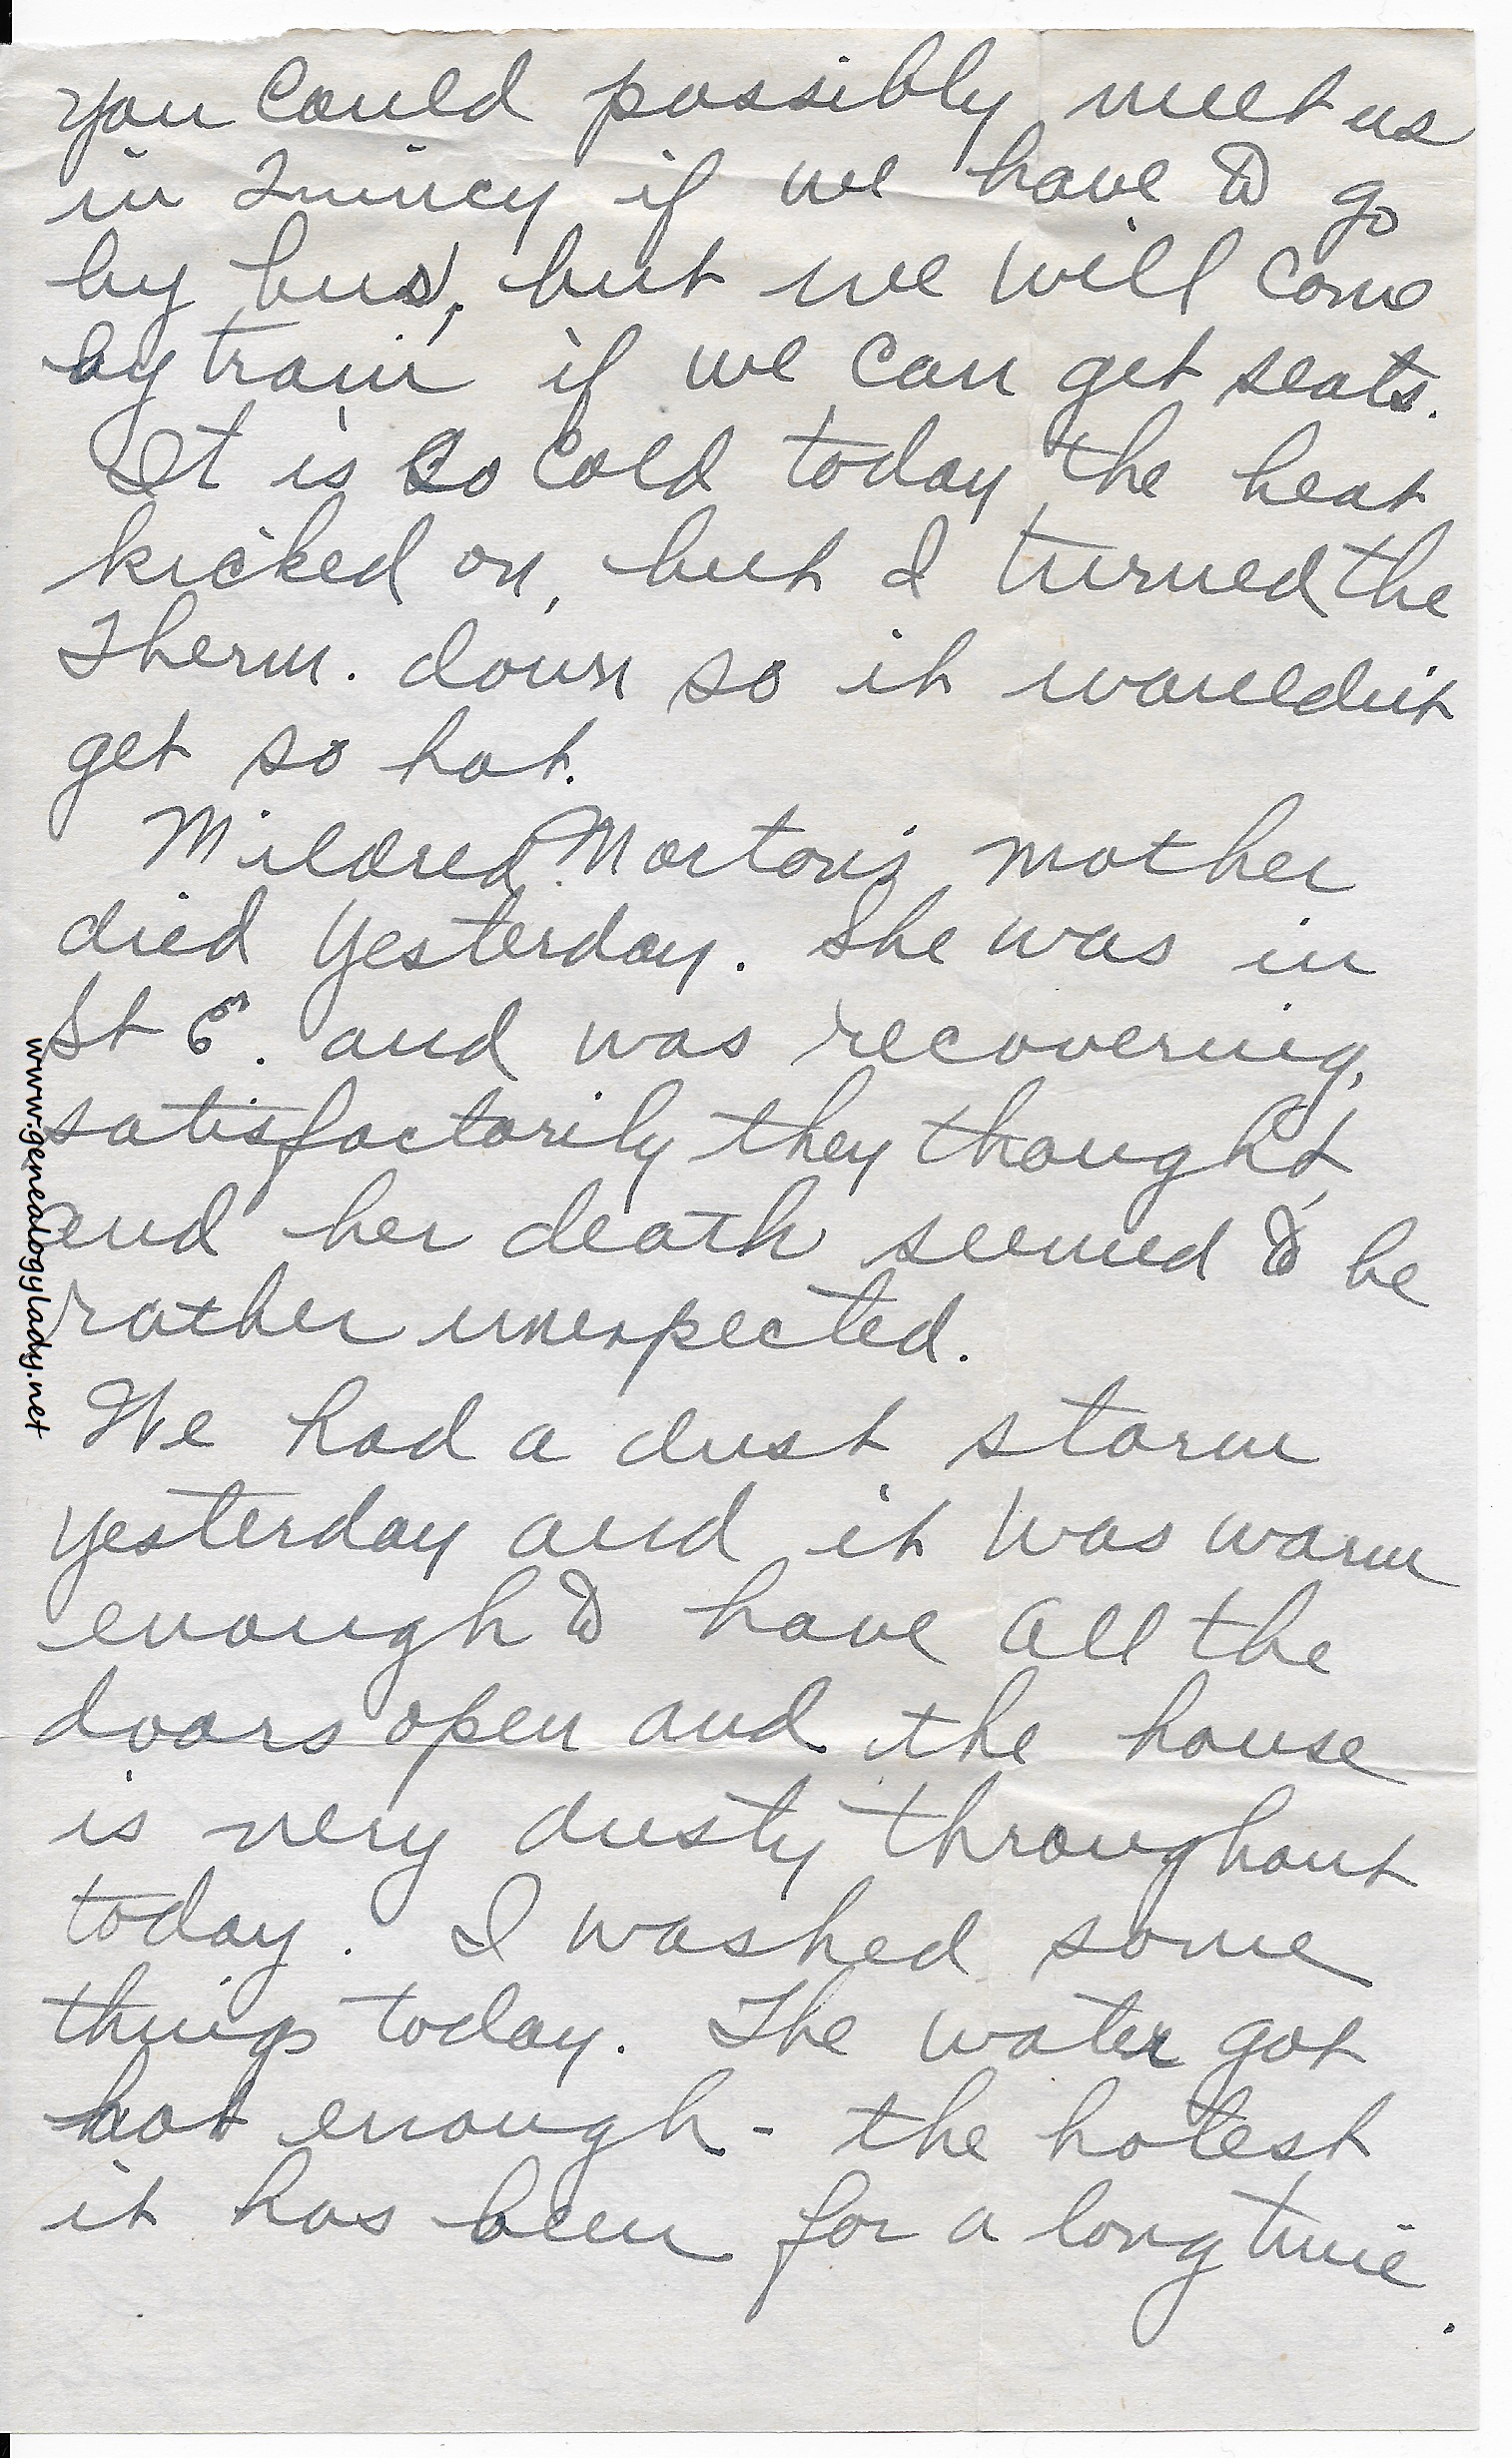 you could possibly meet us
in Quincy if we have to go
by bus, but we will come
by train if we can get seats.
It is so cold today the heat
kicked on, but I turned the
Therm. down so it wouldn't
get so hot.
Mildred Morton's mother
died yesterday. She was in
St E. and was recovering,
satisfactorily they thought,
and her death seemed to be
rather unexpected.
We had a dust storm
yesterday and it was warm
enough to have all the
doors open and the house
is very dusty throughout
today. I washed some
things today. The water got
hot enough - the hotest
it has been for a long time.
www.genealogylady.net